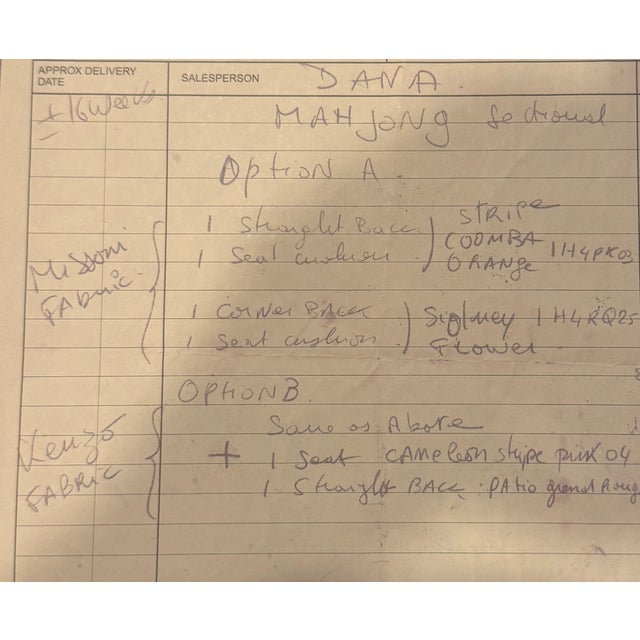 APPROX DELIVERY
DATE
SALESPERSON
DANA.
± 16 weeks
MAHJONG Sectional
Option A.
Missoni
FABRIC.
1 Straight Back
1 Seat cushion
STRIPE
COOMBA
ORANGE
1H4PK03
1 Corner Back
1 Seat cushion
Sidney 1H4RQ25
Flower.
OPTION B.
Kenzo
FABRIC
Same as Above
+ 1 Seat CAMeleon stripe pink 04
1 Straight BACK. PAtio grend Roug